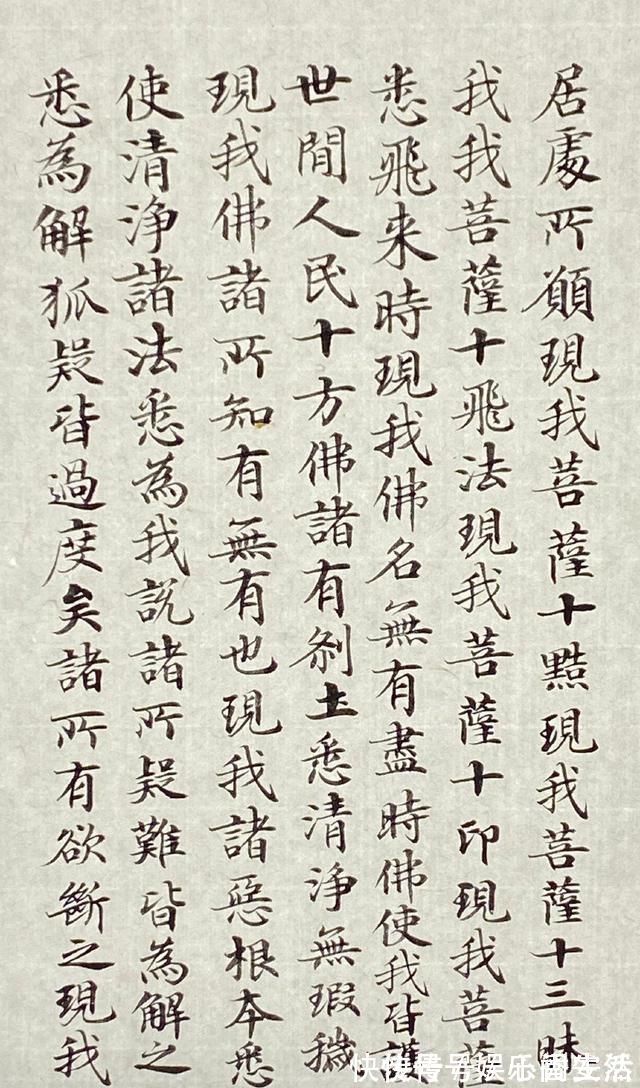 居處所願現我菩薩十黠現我菩薩十三昧
我我菩薩十飛法現我菩薩十印現我菩薩
悉飛来時現我佛名無有盡時佛使我皆護
世間人民十方佛諸有剎土悉清淨無瑕穢
現我佛諸所知有無有也現我諸惡根本悉
使清淨諸法悉為我説諸所疑難皆為解之
悉為解狐疑皆過度矣諸所有欲斷之現我